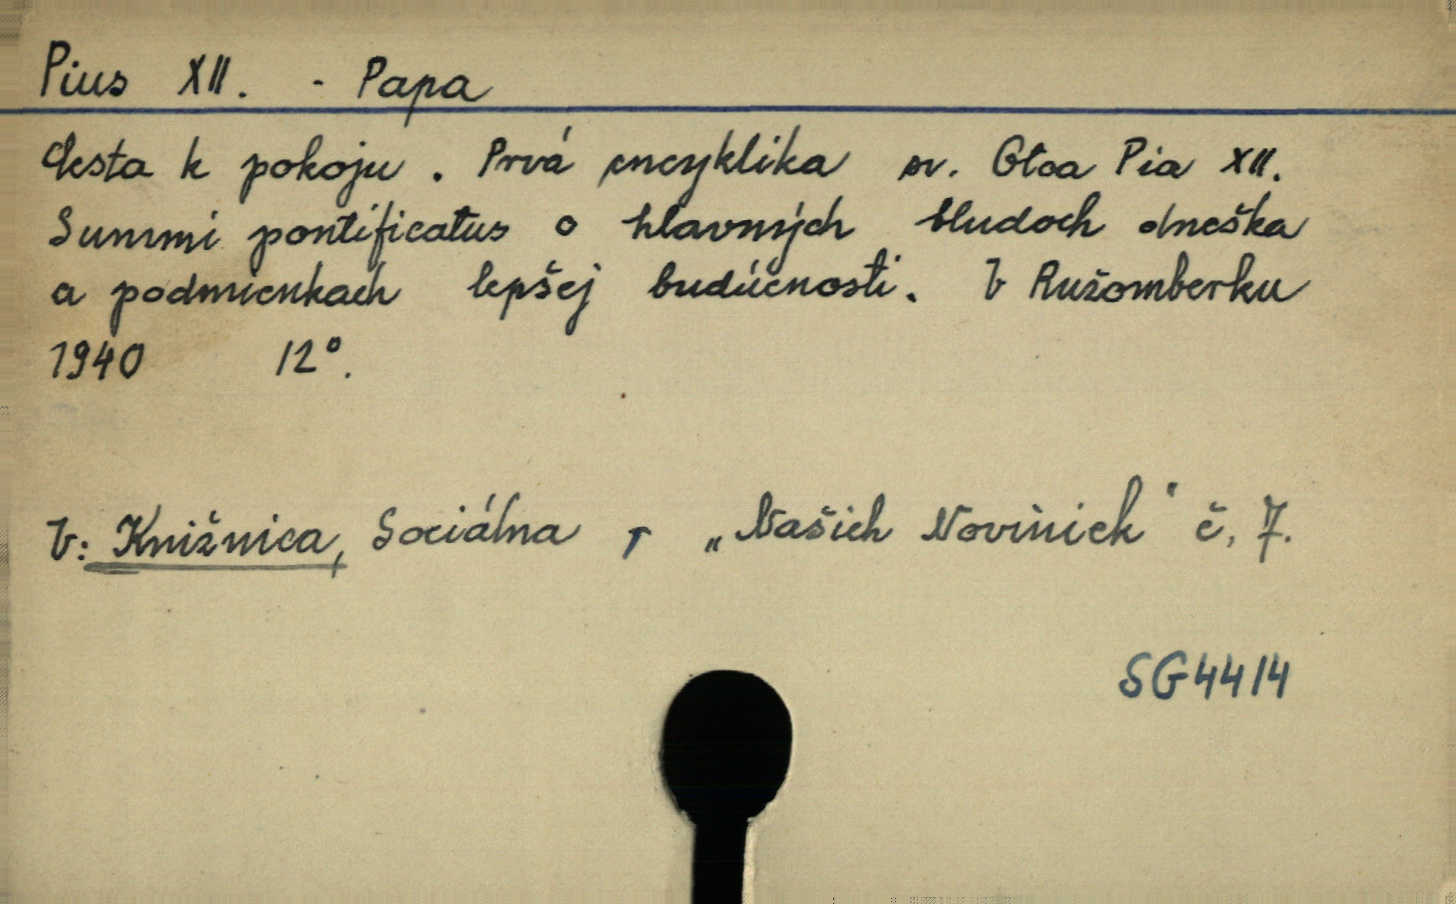 Pius XII. - Papa
Cesta k pokoju. Prvá encyklika sv. Otca Pia XII.
Summi pontificatus o hlavných bludoch dneška
a podmienkach lepšej budúcnosti. V Ružomberku
1940 12°.
V: Knižnica, Sociálna „Našich Noviniek" č. 7.
SG4414